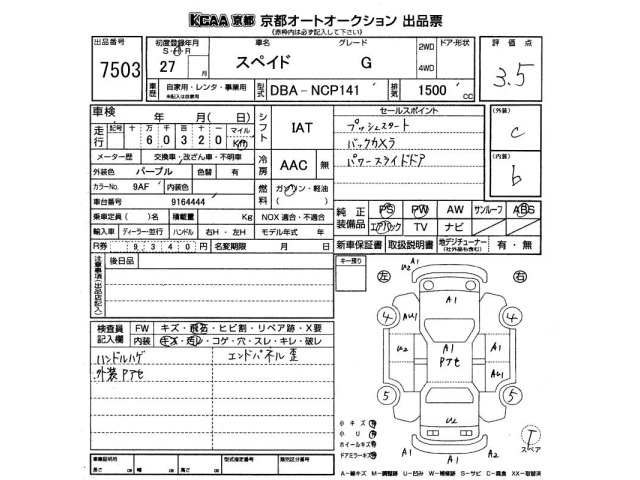 KCAA 京都 京都オートオークション 出品票
(赤枠内は必ず記入して下さい)
出品番号 初度登録年月 車名 グレード 2WD ドア・形状 評価点
S・H R
7503 27 月 スペイド G 4WD 3.5
車歴 自家用・レンタ・事業用 型式 DBA-NCP141 排気 1500 CC
未記入は自家用
車検 年 月(日) シフト IAT セールスポイント (外装)
走行 記号 十 万 千 百 十 一 マイル プッシュスタート C
6 0 3 2 0 Km バックカメラ
メーター歴 交換車・改ざん車・不明車 冷房 AAC 無 パワースライドドア (内装)
外装色 パープル 色替 有 b
カラーNo. 9AF 内装色 燃料 ガソリン・軽油
車台番号 9164444 ( )
乗車定員( )名 積載量 Kg NOX 適合・不適合 純正装備品 PS PW AW サンルーフ ABS
輸入車 ディーラー・並行 ハンドル 右H・左H モデル年式 年 エアバック TV ナビ
R券 9340円 名変期限 月 日 新車保証書 取扱説明書 地デジチューナー 有・無
(社外品も含む)
注意事項(出品店記入) 後日品 キー預り 左 右
検査員記入欄 FW キズ・飛石・ヒビ割・リペア跡・X要
内装 キズ・汚レ・コゲ・穴・スレ・キレ・破レ
ハンドルハゲ エンドパネル歪
外装Pアセ
U2 A1 A1
A1
4 AU1 A1 4
U2 A1 Pアセ A1 AU1
5 5
U2
A1
小キズ
小U
ホイールキズ
ドアミラーキズ
T
スペア
車庫証明用 型式指定番号 類別区分番号
長さ cm 幅 cm 高さ cm
A-線キズ M-調整跡 U-凹み W-補修跡 S-サビ C-腐食 XX-取替済